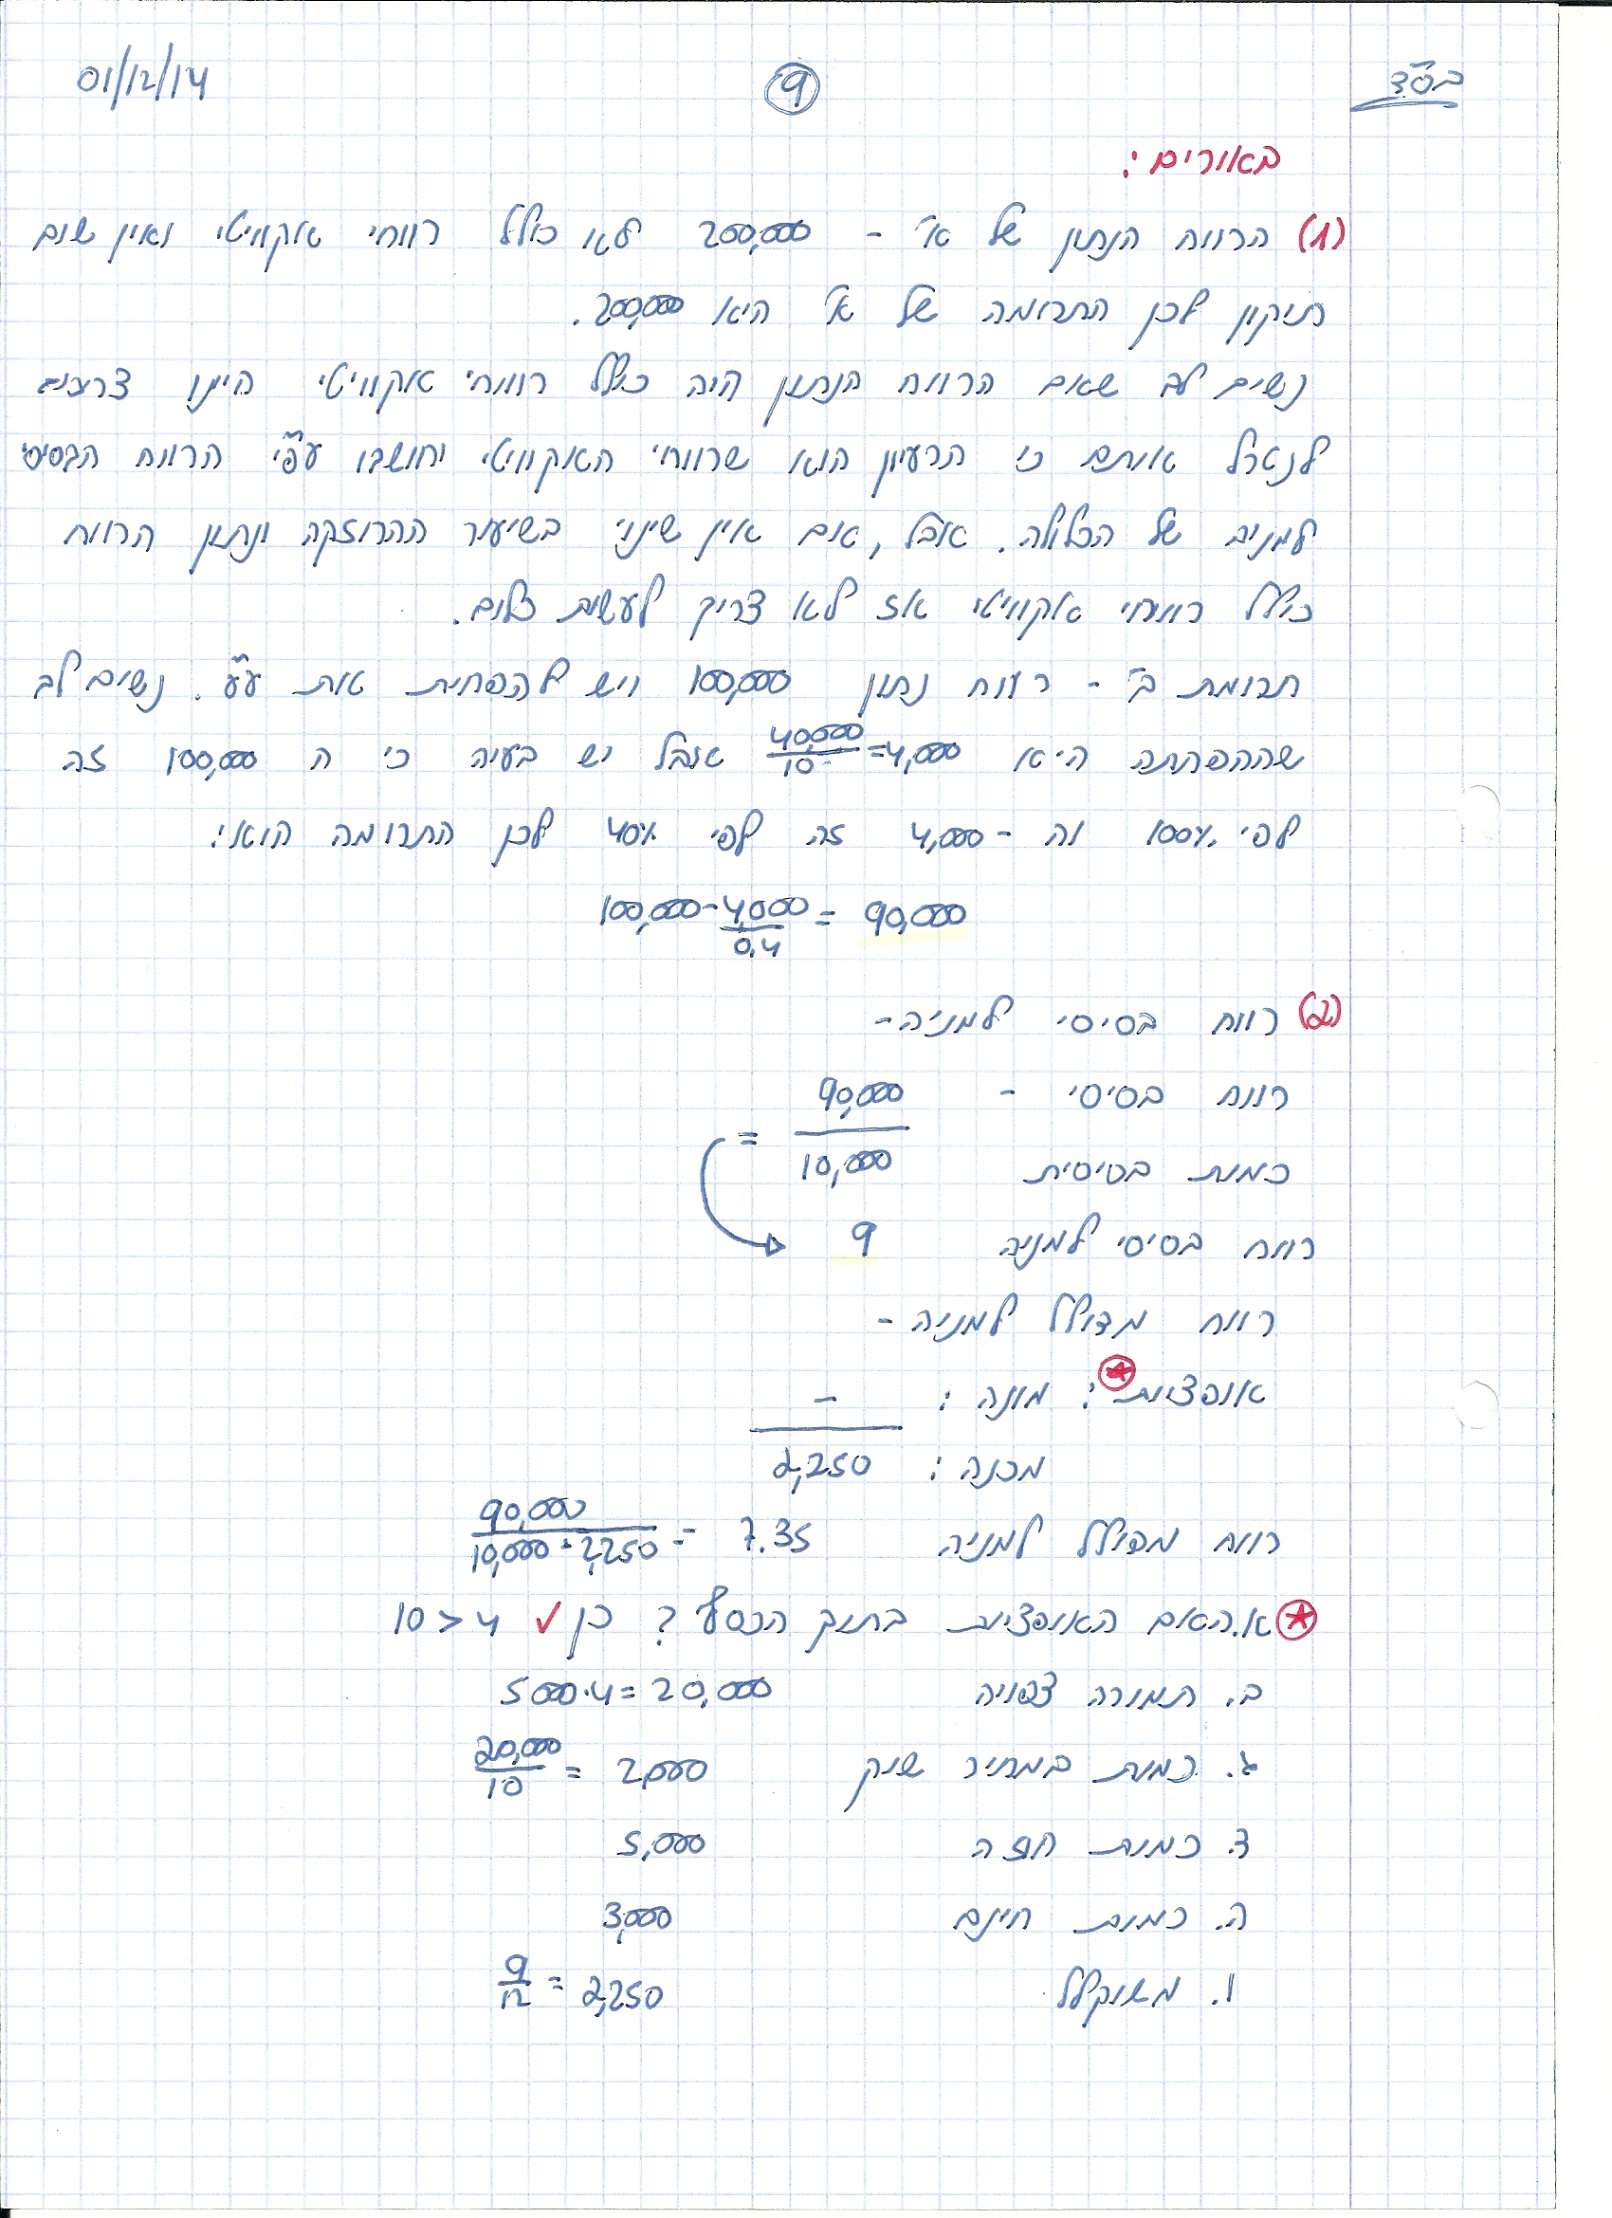 בס"ד
9
01/12/14
באורים:
(1) הרווח הנתון של א' - 200,000 לא כולל רווחי אקוויטי ואין שום
תיקון לכן התרומה של א' היא 200,000.
נשים לב שאם הרווח הנתון היה כולל רווחי אקוויטי היינו צריכים
לנטרל אותם כי הרעיון הוא שרווחי האקוויטי יחושבו עפ"י הרווח הבסיסי
למניה של הכלולה. אבל, אם אין שינוי בשיעור ההחזקה ונתון הרווח
כולל רווחי אקוויטי אז לא צריך לעשות כלום.
תרומת ב' - רווח נתון 100,000 ויש להפחית את ע"ע. נשים לב
שההפחתה היא 40,000/10=4,000 אבל יש בעיה כי ה 100,000 זה
לפי 100% וה - 4,000 זה לפי 40% לכן התרומה הוא:
100,000-4,000/0.4 = 90,000
(2) רווח בסיסי למניה-
רווח בסיסי - 90,000 =
כמות בסיסית 10,000
רווח בסיסי למניה 9
רווח מדולל למניה -
אופציות: מונה: -
מכנה: 2,250
רווח מדולל למניה 7.35 = 90,000/10,000+2,250
א. האם האופציות בתוך הכסף? כן ✓ 10>4
ב. תמורה צפויה 5000·4=20,000
ג. כמות במחיר שוק 20,000/10 = 2,000
ד. כמות חוזה 5,000
ה. כמות חינם 3,000
ו. משוקלל 9/12 = 2,250